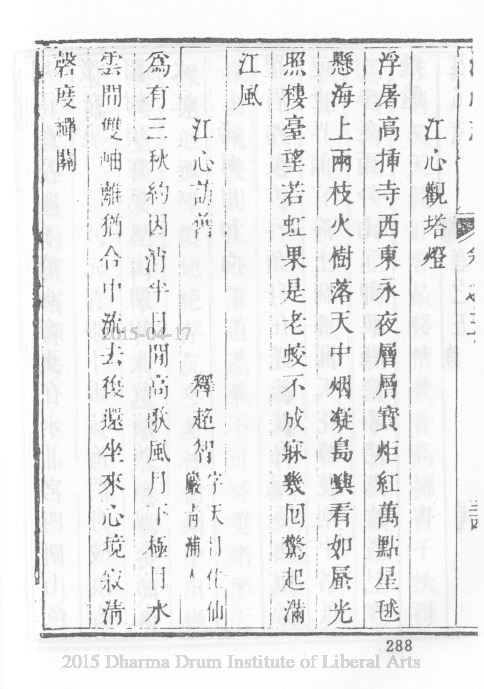 江心觀塔燈
浮屠高揷寺西東永夜層層寶炬紅萬點星毬
懸海上兩枝火樹落天中烟凝島嶼看如蜃光
照樓臺望若虹果是老蛟不成寐幾回驚起滿
江風
江心訪舊 釋超智 字天目化仙
嚴青浦人
為有三秋約因消半日閒高歌風月下極目水
雲間雙岫離猶合中流去復還坐來心境寂清
磬度禪關
2015-04-17
288
2015 Dharma Drum Institute of Liberal Arts